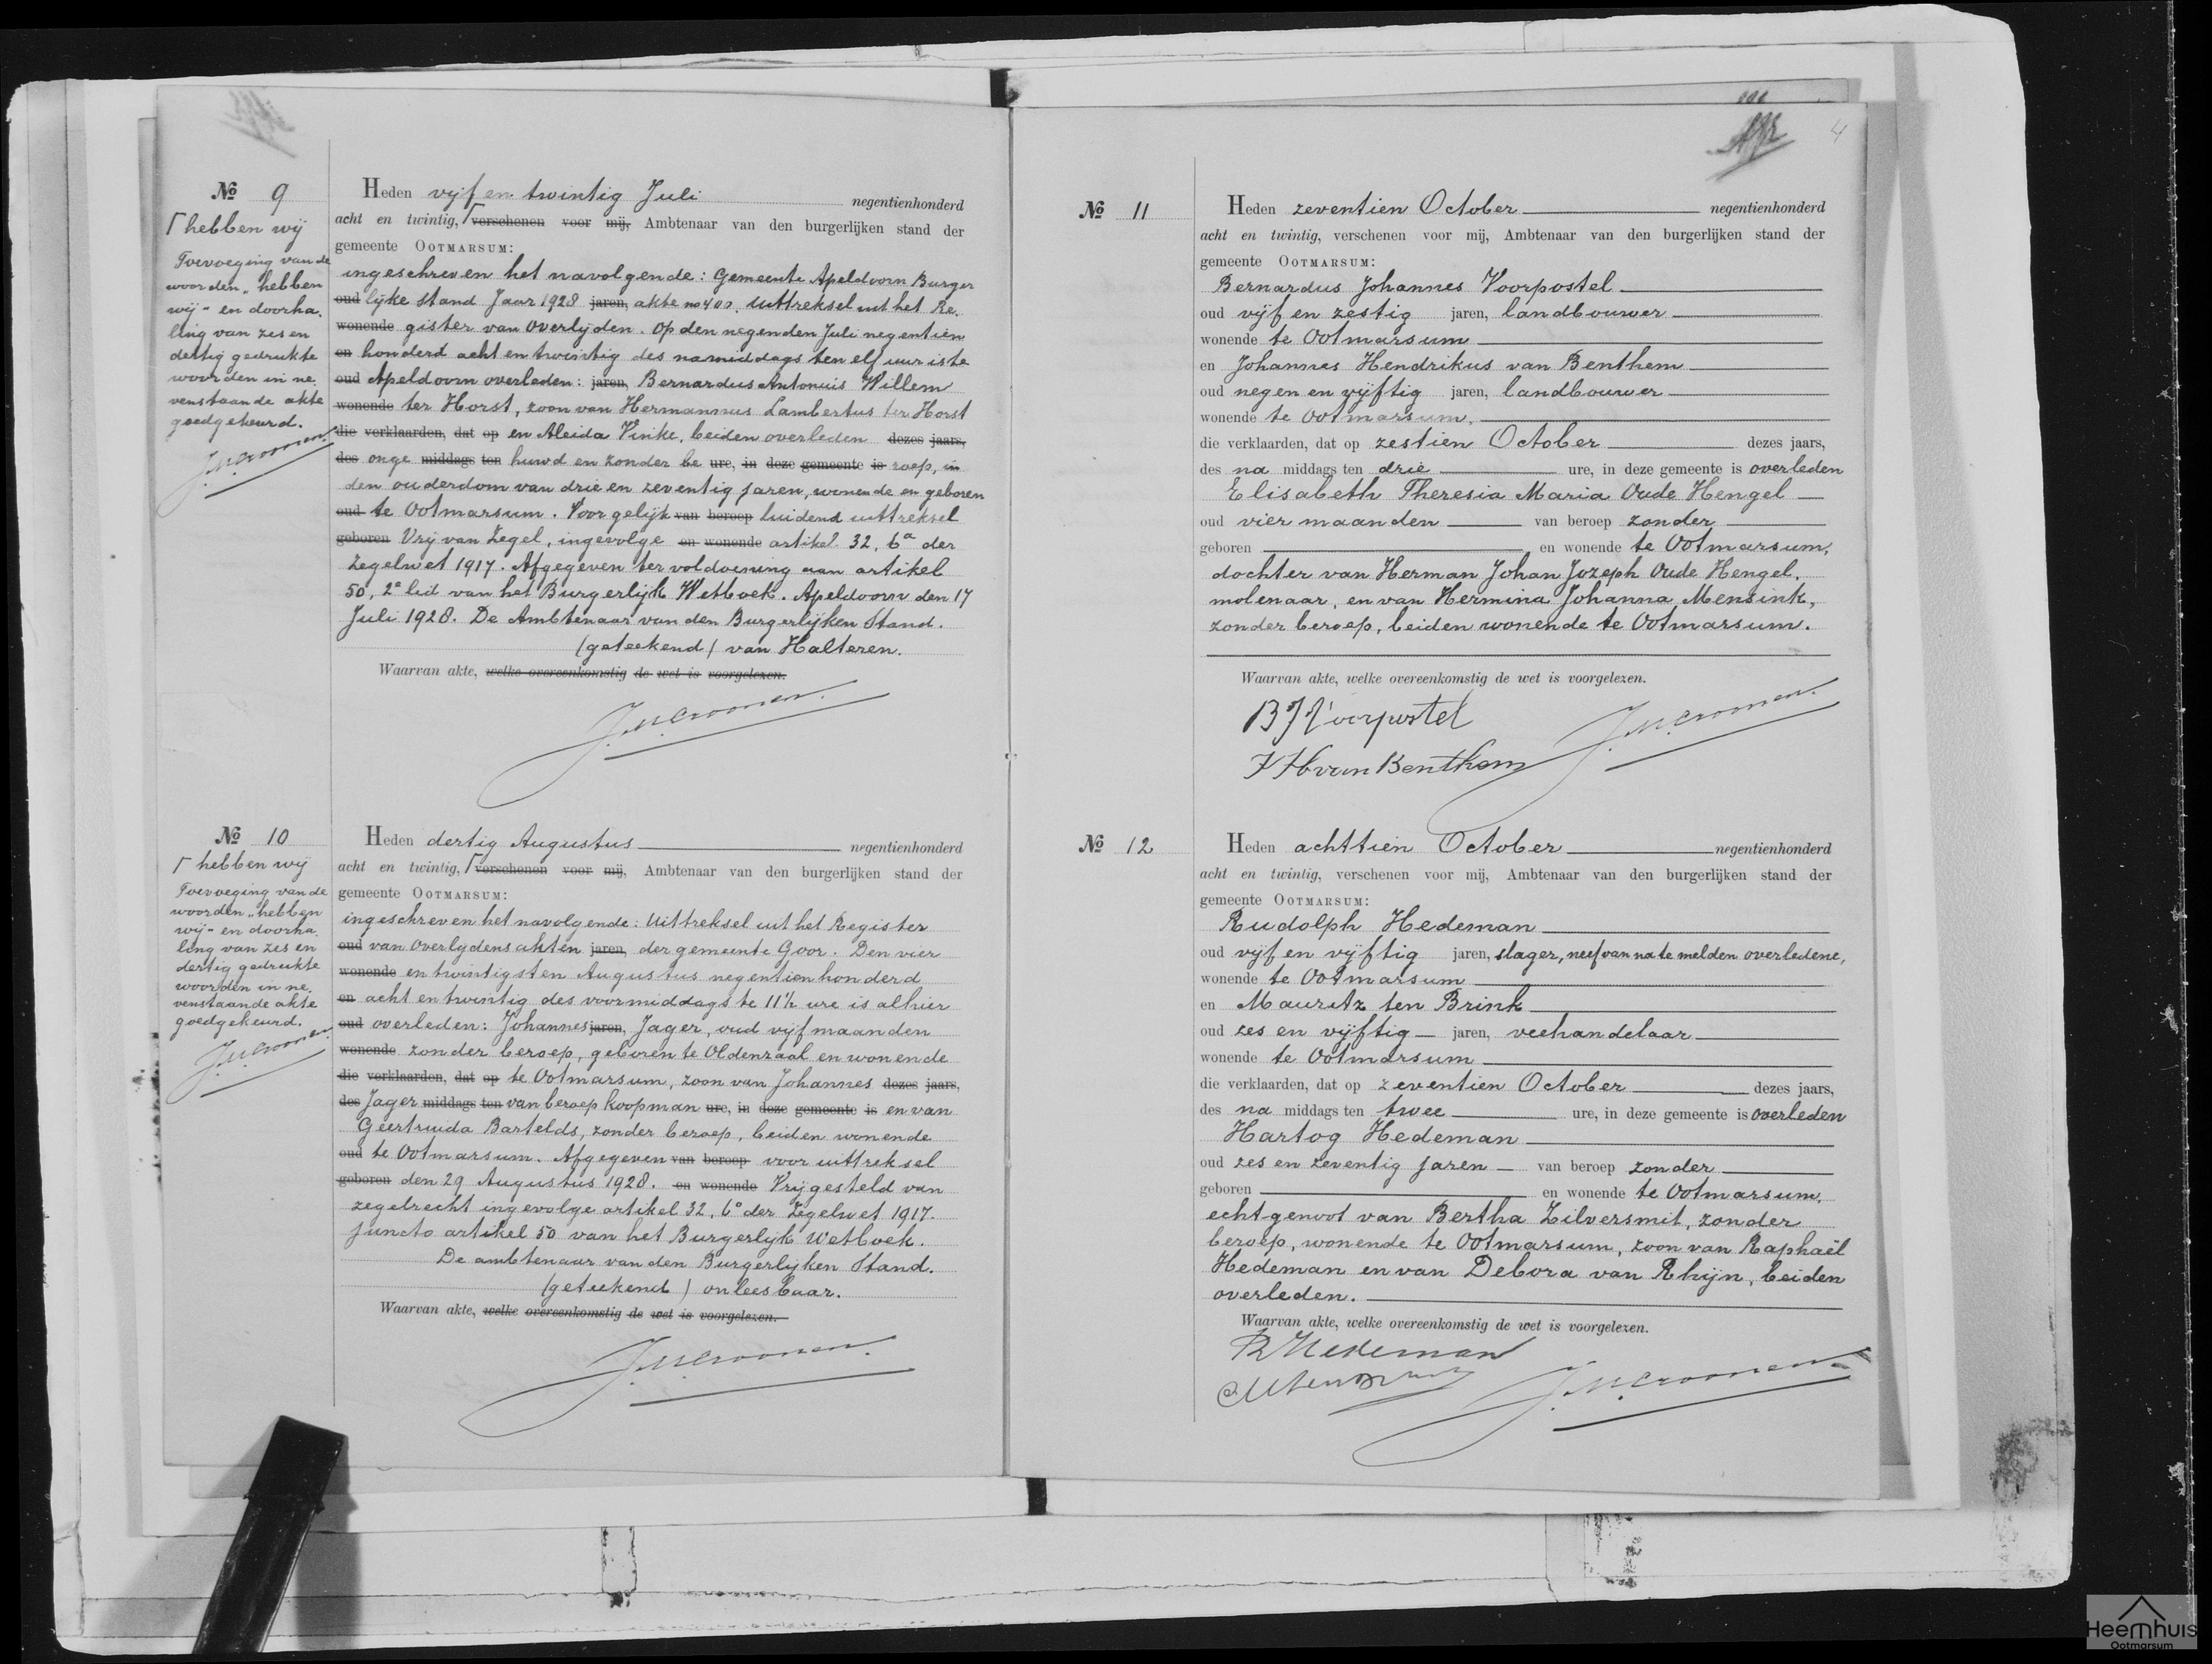 4
№ 9
Heden vijf en twintig Juli negentienhonderd
acht en twintig, ⌈verschenen voor mij, Ambtenaar van den burgerlijken stand der
gemeente OOTMARSUM:
ingeschreven het navolgende: Gemeente Apeldoorn Burger
oud lijke stand Jaar 1928 jaren, akte no 400. Uittreksel uit het Re.
wonende gister van Overlijden. Op den negenden Juli negentien
en honderd acht en twintig des namiddags ten elf uur is te
oud Apeldoorn overleden: jaren, Bernardus Antonius Willem
wonende ter Horst, zoon van Hermannus Lambertus ter Horst
die verklaarden, dat op en Aleida Vinke, beiden overleden dezes jaars,
des onge middags ten huwd en zonder be ure, in deze gemeente is roep, in
den ouderdom van drie en zeventig jaren, wonende en geboren
oud te Ootmarsum. Voor gelijk van beroep luidend uittreksel
geboren Vrij van Zegel, ingevolge en wonende artikel 32, 6a der
Zegelwet 1917. Afgegeven ter voldoening aan artikel
50, 2e lid van het Burgerlijk Wetboek. Apeldoorn den 17
Juli 1928. De Ambtenaar van den Burgerlijken Stand.
(geteekend) van Halteren.
Waarvan akte, welke overeenkomstig de wet is voorgelezen.
⌈ hebben wij
Toevoeging van de
woorden „hebben
wij" en doorha.
ling van zes en
dertig gedrukte
woorden in ne.
venstaande akte
goedgekeurd.
№ 10
Heden dertig Augustus negentienhonderd
acht en twintig, ⌈verschenen voor mij, Ambtenaar van den burgerlijken stand der
gemeente OOTMARSUM:
ingeschreven het navolgende: Uittreksel uit het Register
oud van Overlijdensakten jaren, der gemeente Goor. Den vier
wonende en twintigsten Augustus negentienhonderd
en acht en twintig des voormiddags te 11½ ure is alhier
oud overleden: Johannes jaren, Jager, oud vijf maanden
wonende zonder beroep, geboren te Oldenzaal en wonende
die verklaarden, dat op te Ootmarsum, zoon van Johannes dezes jaars,
des Jager middags ten van beroep koopman ure, in deze gemeente is en van
Geertruida Bartelds, zonder beroep, beiden wonende
oud te Ootmarsum. Afgegeven van beroep voor uittreksel
geboren den 29 Augustus 1928. en wonende Vrijgesteld van
zegelrecht ingevolge artikel 32, 6° der Zegelwet 1917.
juncto artikel 50 van het Burgerlijk Wetboek.
De ambtenaar van den Burgerlijken Stand.
(geteekend) onleesbaar.
Waarvan akte, welke overeenkomstig de wet is voorgelezen.
⌈ hebben wij
Toevoeging van de
woorden „hebben
wij" en doorha.
ling van zes en
dertig gedrukte
woorden in ne.
venstaande akte
goedgekeurd.
№ 11
Heden zeventien October negentienhonderd
acht en twintig, verschenen voor mij, Ambtenaar van den burgerlijken stand der
gemeente OOTMARSUM:
Bernardus Johannes Voorpostel
oud vijf en zestig jaren, landbouwer
wonende te Ootmarsum
en Johannes Hendrikus van Benthem
oud negen en vijftig jaren, landbouwer
wonende te Ootmarsum,
die verklaarden, dat op zestien October dezes jaars,
des na middags ten drie ure, in deze gemeente is overleden
Elisabeth Theresia Maria Oude Hengel
oud vier maanden van beroep zonder
geboren en wonende te Ootmarsum,
dochter van Herman Johan Jozeph Oude Hengel,
molenaar, en van Hermina Johanna Mensink,
zonder beroep, beiden wonende te Ootmarsum.
Waarvan akte, welke overeenkomstig de wet is voorgelezen.
B J Voorpostel
J H van Benthem
№ 12
Heden achttien October negentienhonderd
acht en twintig, verschenen voor mij, Ambtenaar van den burgerlijken stand der
gemeente OOTMARSUM:
Rudolph Hedeman
oud vijf en vijftig jaren, slager, neef van na te melden overledene,
wonende te Ootmarsum
en Mauritz ten Brink
oud zes en vijftig jaren, veehandelaar
wonende te Ootmarsum
die verklaarden, dat op zeventien October dezes jaars,
des na middags ten twee ure, in deze gemeente is overleden
Hartog Hedeman
oud zes en zeventig jaren van beroep zonder
geboren en wonende te Ootmarsum,
echtgenoot van Bertha Zilversmit, zonder
beroep, wonende te Ootmarsum, zoon van Raphaël
Hedeman en van Debora van Rhijn, beiden
overleden.
Waarvan akte, welke overeenkomstig de wet is voorgelezen.
R Hedeman
Heemhuis
Ootmarsum